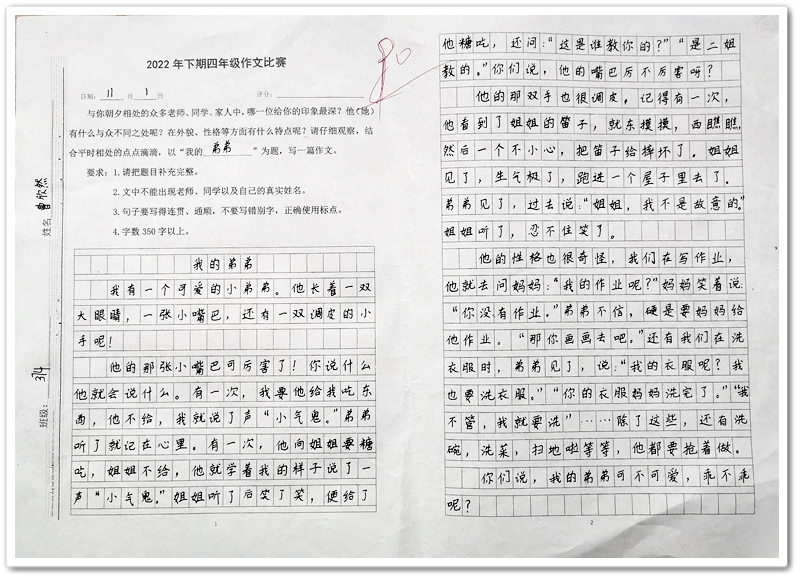 2022年下期四年级作文比赛
日期:11月1日 评分:
与你朝夕相处的众多老师、同学、家人中,哪一位给你的印象最深?他(她)
有什么与众不同之处呢?在外貌、性格等方面有什么特点呢?请仔细观察,结
合平时相处的点点滴滴,以“我的弟弟”为题,写一篇作文。
要求:1.请把题目补充完整。
2.文中不能出现老师、同学以及自己的真实姓名。
3.句子要写得连贯、通顺,不要写错别字,正确使用标点。
4.字数350字以上。
姓名 曹欣然
班级: 314
我的弟弟
我有一个可爱的小弟弟。他长着一双
大眼睛,一张小嘴巴,还有一双调皮的小
手呢!
他的那张小嘴巴可厉害了!你说什么
他就会说什么。有一次,我要他给我吃东
西,他不给,我就说了声“小气鬼。”弟弟
听了就记在心里。有一次,他向姐姐要糖
吃,姐姐不给,他就学着我的样子说了一
声“小气鬼。”姐姐听了后笑了笑,便给了
1
他糖吃,还问:“这是谁教你的?”“是二姐
教的。”你们说,他的嘴巴厉不厉害呀?
他的那双手也很调皮。记得有一次,
他看到了姐姐的笛子,就东摸摸,西瞧瞧,
然后一个不小心,把笛子给摔坏了。姐姐
见了,生气极了,跑进一个屋子里去了。
弟弟见了,过去说:“姐姐,我不是故意的。”
姐姐听了,忍不住笑了。
他的性格也很奇怪,我们在写作业,
他就去问妈妈:“我的作业呢?”妈妈笑着说
“你没有作业。”弟弟不信,硬是要妈妈给
他作业。“那你画画去吧。”还有我们在洗
衣服时,弟弟见了,说:“我的衣服呢?我
也要洗衣服。”“你的衣服妈妈洗完了。”“我
不管,我就要洗”……除了这些,还有洗
碗,洗菜,扫地啦等等,他都要抢着做。
你们说,我的弟弟可不可爱,乖不乖
呢?
2